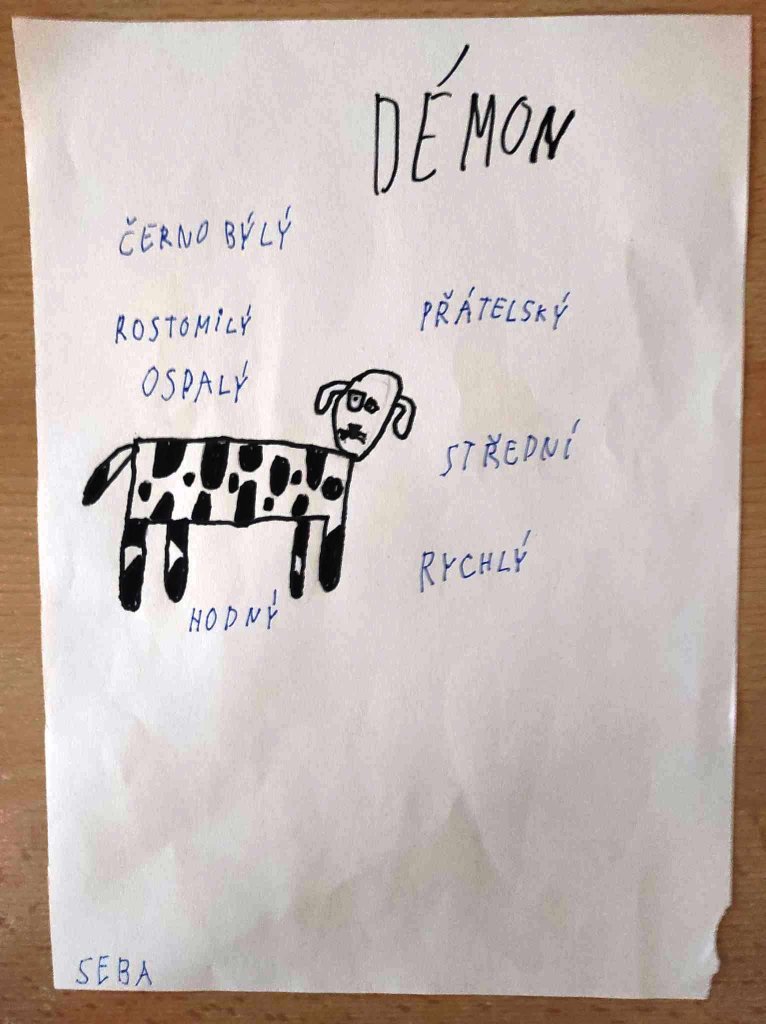 DÉMON
ČERNO BÝLÝ
ROSTOMILÝ
PŘÁTELSKÝ
OSPALÝ
STŘEDNÍ
RYCHLÝ
HODNÝ
SEBA